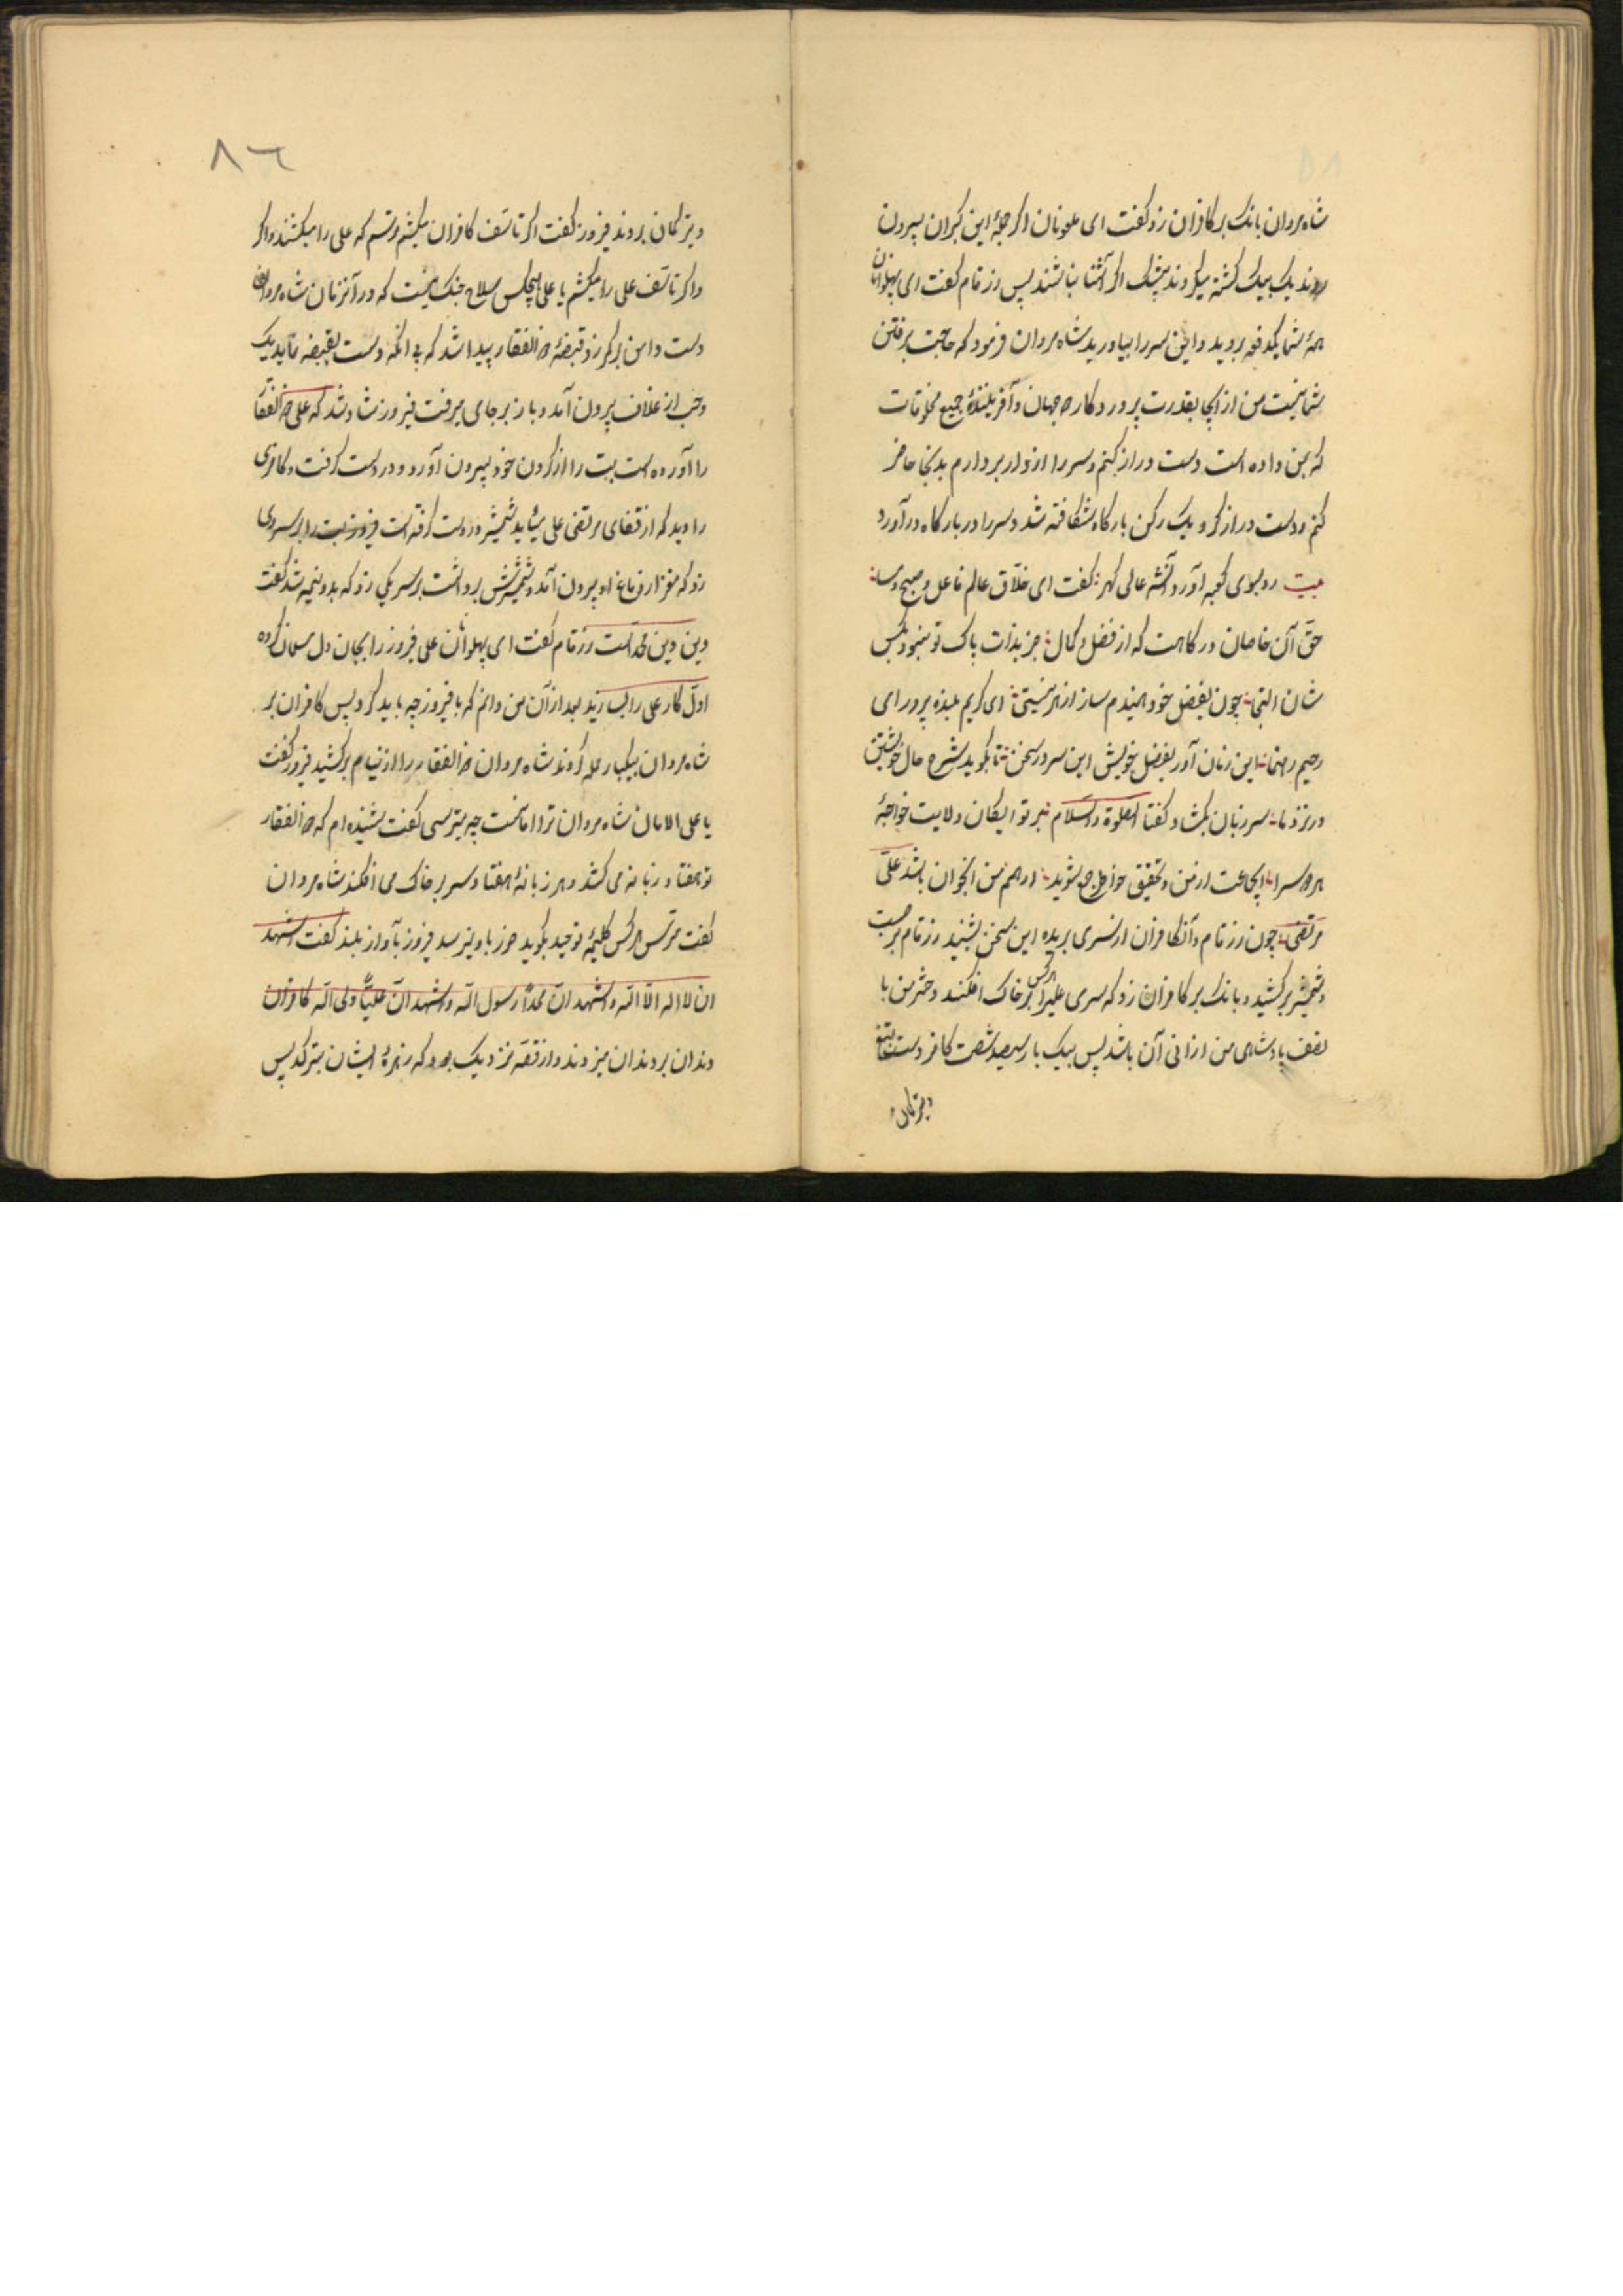 شاه مردان بانک بر کافران زد گفت ای ملعونان اگر جملهٔ این کبران بیرون
روند یک بیک کشته میکردند بیشک اگر آشنا نباشند پس رزتام گفت ای پهلوانان
همهٔ شما یکدفعه بروید و این سر را بیاورید شاه مردان فرمود که حاجت برفتن
شما نیست من از اینجا بقدرت پروردکار جهان و آفرینندهٔ جمیع مخلوقات
که بمن داده است دست دراز کنم و سر را از دار بردارم بدینجا حاضر
کنم و دست دراز کرد و یک رکن بارکاه شکافته شد و سر را در بارکاه درآورد
بیت رو بسوی کعبه آورد آنشه عالی کهر گفت ای خلّاق عالم فاعل صبح و مسا
حقّ آن خاصان درکاهت که از فضل و کمال جز بذات پاک تو نبود کس
شان التجی چون بفضل خود همیدم ساز از هر نیستی ای کریم بنده پرور ای
رحیم رهنما این زمان آور بفضل خویش این سر در سخن تا بکوید شرح حال خویشتن
در نزد ما سر زبان بکشاد و گفتا الصلوة والسلام بر تو ای کان ولایت خواجهٔ
هر دو سرا ای جماعت از من تحقیق خواجه بشنوید ابرهم من اینجوان باشد علیّ
مرتضی چون رزتام و آنکافران از سری بریده این سخن بشنید رزتام برجست
و شمشیر برکشید و بانک بر کافران زد که سری علیرا هرکس بر خاک افکند دختر من با
نصف پادشاهی من ارزانی آن باشد پس بیک بار سیصد شصت کافر دست بتیغ
و تیر کمان
٨٦
و تیر کمان بردند فیروز گفت اگر تا سّف کافران میکشم ترسم که علی را میکشند و اگر
و اگر تا سّف علی را میکشم با علی هیچکس سلاح جنک نیست که در آنزمان شاه مردان
دست دامن برکمر زد قبضهٔ ذوالفقار پیدا شد که بی آنکه دست بقبضه نماید یک
وجب از غلاف بیرون آمد و باز بر جای میرفت فیروز شاد شد که علی ذوالفقار
را آورده است بت را از کردن خود بیرون آورد و در دست کرفت و کافری
را دید که از قفای مرتضی علی میآید شمشیر در دست کرفته است فیروز بت را بر سر وی
زد که مغز از دماغ او بیرون آمد و شمشیرش برداشت بر سر یکی زد که بدو نیمه شد گفت
دین دین محمّد است رزتام گفت ای پهلوانان علی فیروز را بجان دل مسلمان کرده
اوّل کار علی را بسازید بعد از آن من دانم که با فیروز چه باید کرد پس کافران بر
شاه مردان بیکبار حمله آوردند شاه مردان ذوالفقار را از نیام برکشید فیروز گفت
یا علی الامان شاه مردان ترا امانست چه میترسی گفت شنیده ام که ذوالفقار
تو هفتاد زبانه می کشد و هر زبانهٔ هفتاد سر بر خاک می افکند شاه مردان
گفت مترس هرکس کلمهٔ توحید بکوید ضرر باو نیرسد فیروز بآواز بلند گفت اشهد
ان لا اله الّا اللّه و اشهد انّ محمّداً رسول اللّه و اشهد انّ علیّاً ولی اللّه کافران
دندان بر دندان میزدند و از قصّه نزدیک بود که زهرهٔ ایشان بترکد پس